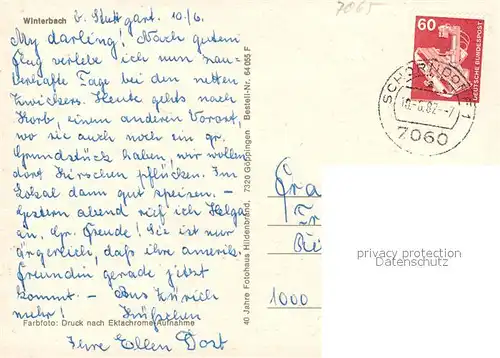 Winterbach b. Stuttgart. 10./6.
My darling! Nach gutem
Flug verlebe ich nun zau-
berhafte Tage bei den netten
Zwickers. Heute gehts nach
Horb, einem anderen Vorort,
wo sie auch noch ein gr.
Grundstück haben, wir wollen
dort Kirschen pflücken. Im
Lokal dann gut speisen. –
Gestern abend rief ich Helga
an. Gr. Freude! Sie ist nur
ärgerlich, daß ihre amerik.
Freundin gerade jetzt
kommt. – Aus Zürich
mehr! Küßchen
Farbfoto: Druck nach Ektachrome-Aufnahme
Ihre Ellen Dost
40 Jahre Fotohaus Hildenbrand, 7320 Göppingen Bestell-Nr. 64 055 F
7065
60
DEUTSCHE BUNDESPOST
SCHORNDORF 1
10.-6.82.-7
7060
Fra
Fr
1000
privacy protection
by oldthing.com